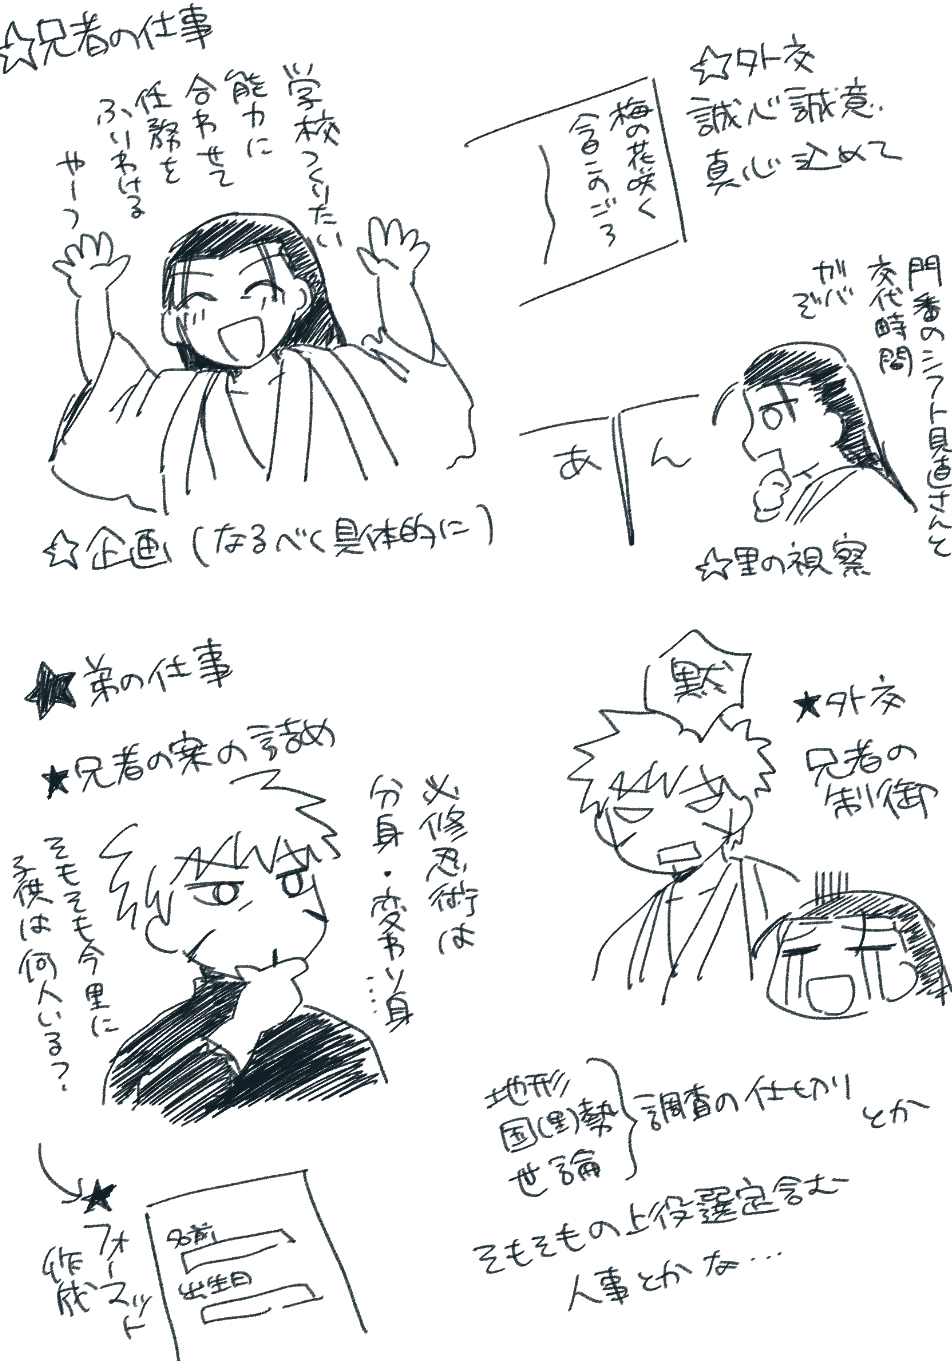 ☆兄者の仕事
学校つくりたい
能力に
合わせて
任務を
ふりわける
やーつ
☆企画(なるべく具体的に)
☆外交
誠心誠意
真心込めて
梅の花咲く
今日このごろ
門番のシフト見直さんと
交代時間
ガバ
ぞ
あ
ん
☆里の視察
★弟の仕事
★兄者の案の詰め
必修忍術は
分身・変わり身…
そもそも今里に
子供は何人いる?
★フォーマット
作成
名前
出生日
黙
★外交
兄者の
制御
地形
国(里)勢
世論
調査の仕切り
とか
そもそもの上役選定含む
人事とかな…